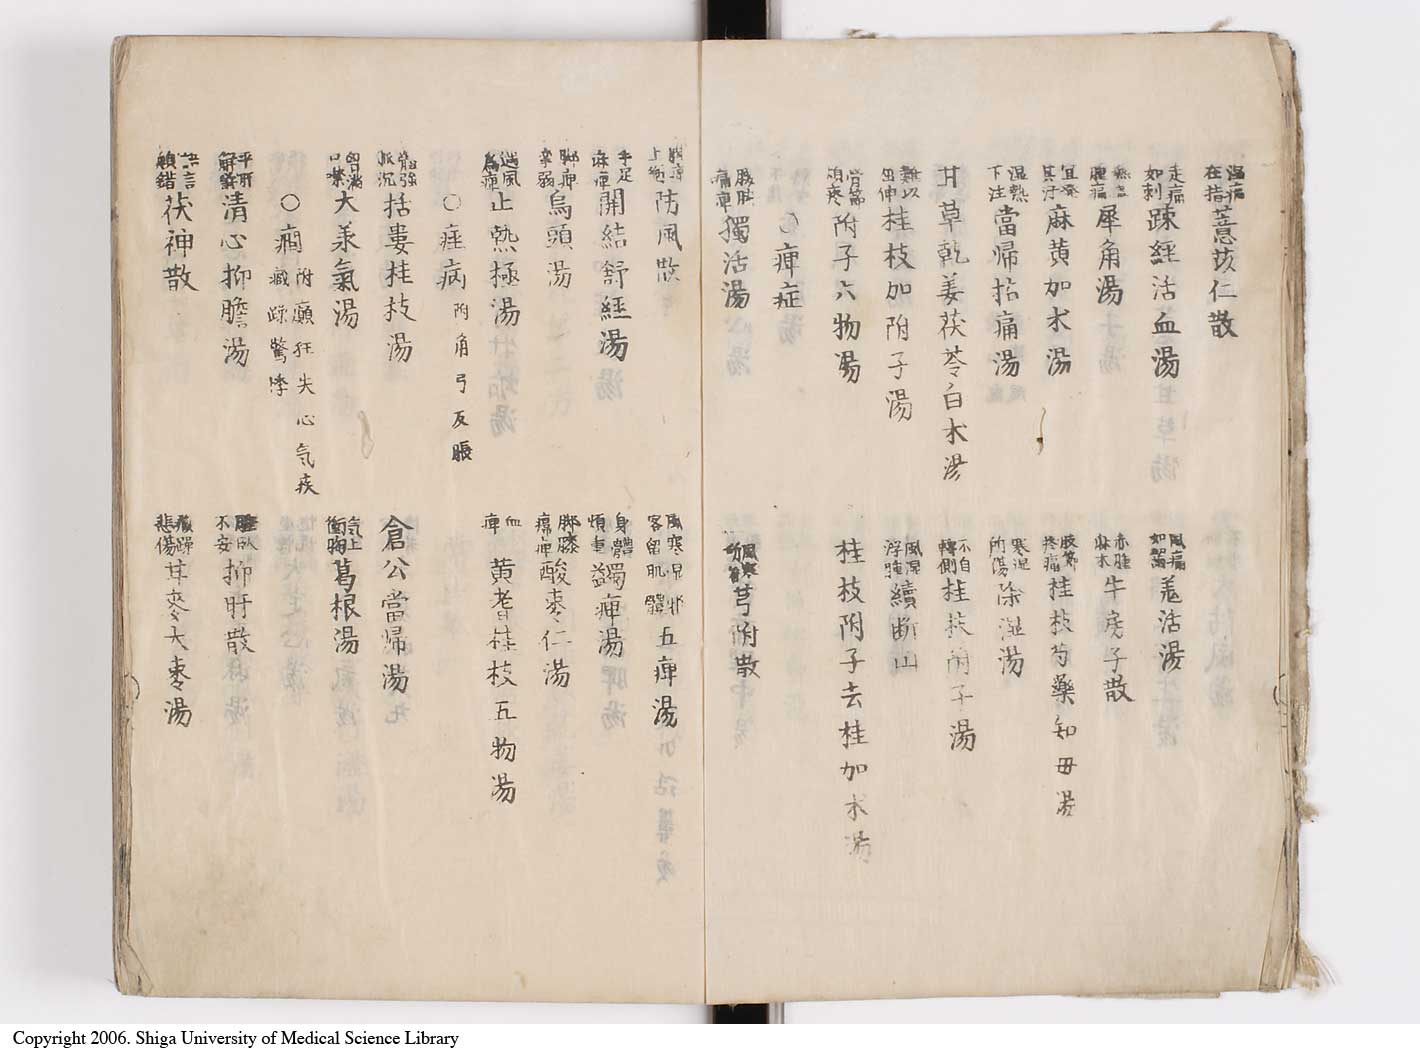 湿痛在指薏苡仁散
走痛如刺疎経活血湯
風痛羗活湯
犀角湯
赤腫麻木牛房子散
宜発其汗麻黄加朮湯
肢節疼痛桂枝芍薬知母湯
湿熱下注當帰拈痛湯
寒湿所傷除湿湯
甘草乾姜茯苓白朮湯
不自轉側桂枝附子湯
難以屈伸桂枝加附子湯
風湿浮腫續断山
骨節煩疼附子六物湯
桂枝附子去桂加朮湯
○痺症
獨活湯
風寒芎附散
防風散
風寒湿邪客留肌體五痺湯
手足麻痺開結舒経湯
身體煩重蠲痺湯
脚痺攣弱烏頭湯
脚膝痛痺酸棗仁湯
過風為痺止熱極湯
血痺黄耆桂枝五物湯
○痙病附角弓反脹
體強脈沉括婁桂枝湯
倉公當帰湯
胸満口噤大承氣湯
氣上衝胸葛根湯
○癇附癲狂失心気疾藏躁驚悸
平肝解欝清心抑膽湯
睡臥不安抑肝散
妄言顛錯茯神散
藏躁悲傷甘麥大棗湯
Copyright 2006. Shiga University of Medical Science Library